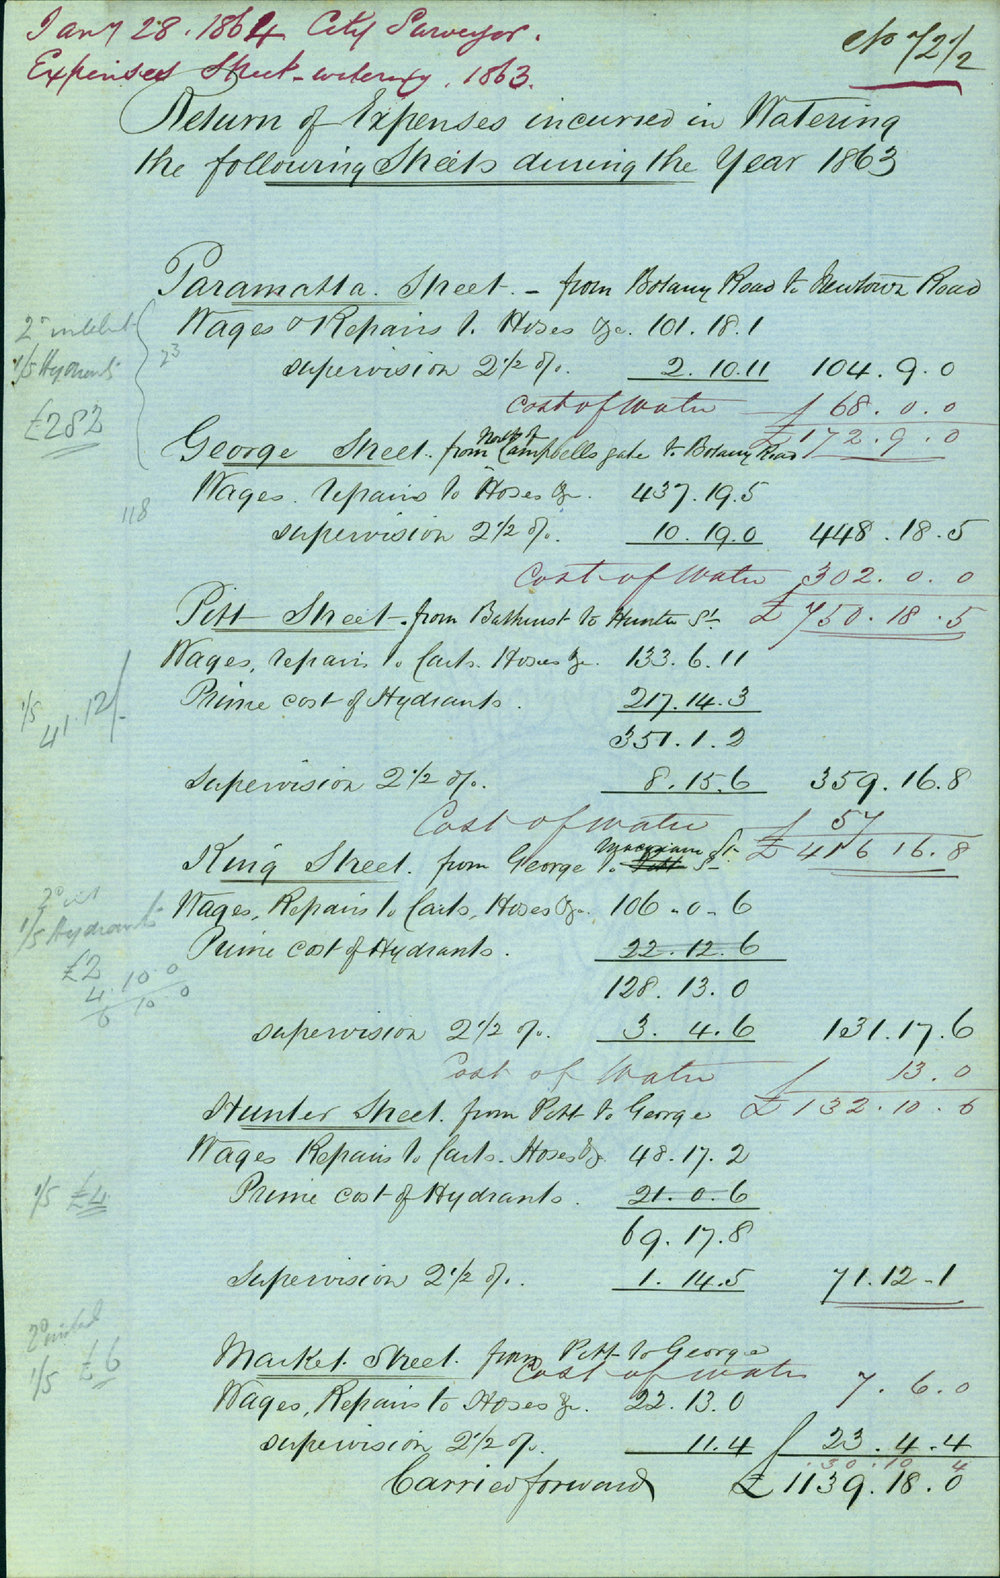 Jany 28. 1864. City Surveyor.
Expenses Street-watering. 1863.
No 72 1/2
Return of Expenses incurred in Watering
the following Streets during the Year 1863
Paramatta Street. - from Botany Road to Newtown Road
Wages & Repairs to Hoses &c. 101.18.1
supervision 2 1/2 %. 2.10.11 104.9.0
Cost of Water 68.0.0
£172.9.0
George Street. from North of Campbells gate to Botany Road
Wages. repairs to Hoses &c. 437.19.5
supervision 2 1/2 %. 10.19.0 448.18.5
Cost of Water 302.0.0
£750.18.5
Pitt Street. from Bathurst to Hunter St
Wages, repairs to Carts. Hoses &c. 133.6.11
Prime cost of Hydrants. 217.14.3
351.1.2
Supervision 2 1/2 %. 8.15.6 359.16.8
Cost of water 57
£416 16.8
King Street. from George to Macquarie St Pitt St
Wages, Repairs to Carts, Hoses &c. 106-0-6
Prime cost of Hydrants. 22.12.6
128.13.0
supervision 2 1/2 %. 3.4.6 131.17.6
Cost of Water 13.0
£132.10.6
Hunter Street. from Pitt to George
Wages Repairs to Carts. Hoses &c. 48.17.2
Prime cost of Hydrants. 21.0.6
69.17.8
Supervision 2 1/2 %. 1.14.5 71.12-1
Market Street. from Pitt to George
Cost of water 7.6.0
Wages, Repairs to Hoses &c. 22.13.0
supervision 2 1/2 %. 11.4 23.4.4
30.10 4
Carried forward £1139.18.0
1/5 Hydrants
23
£282
118
1/5 41.12/-
1/5 Hydrants
£2
4.10.0
6 10 0
1/5 £4
1/5 £6